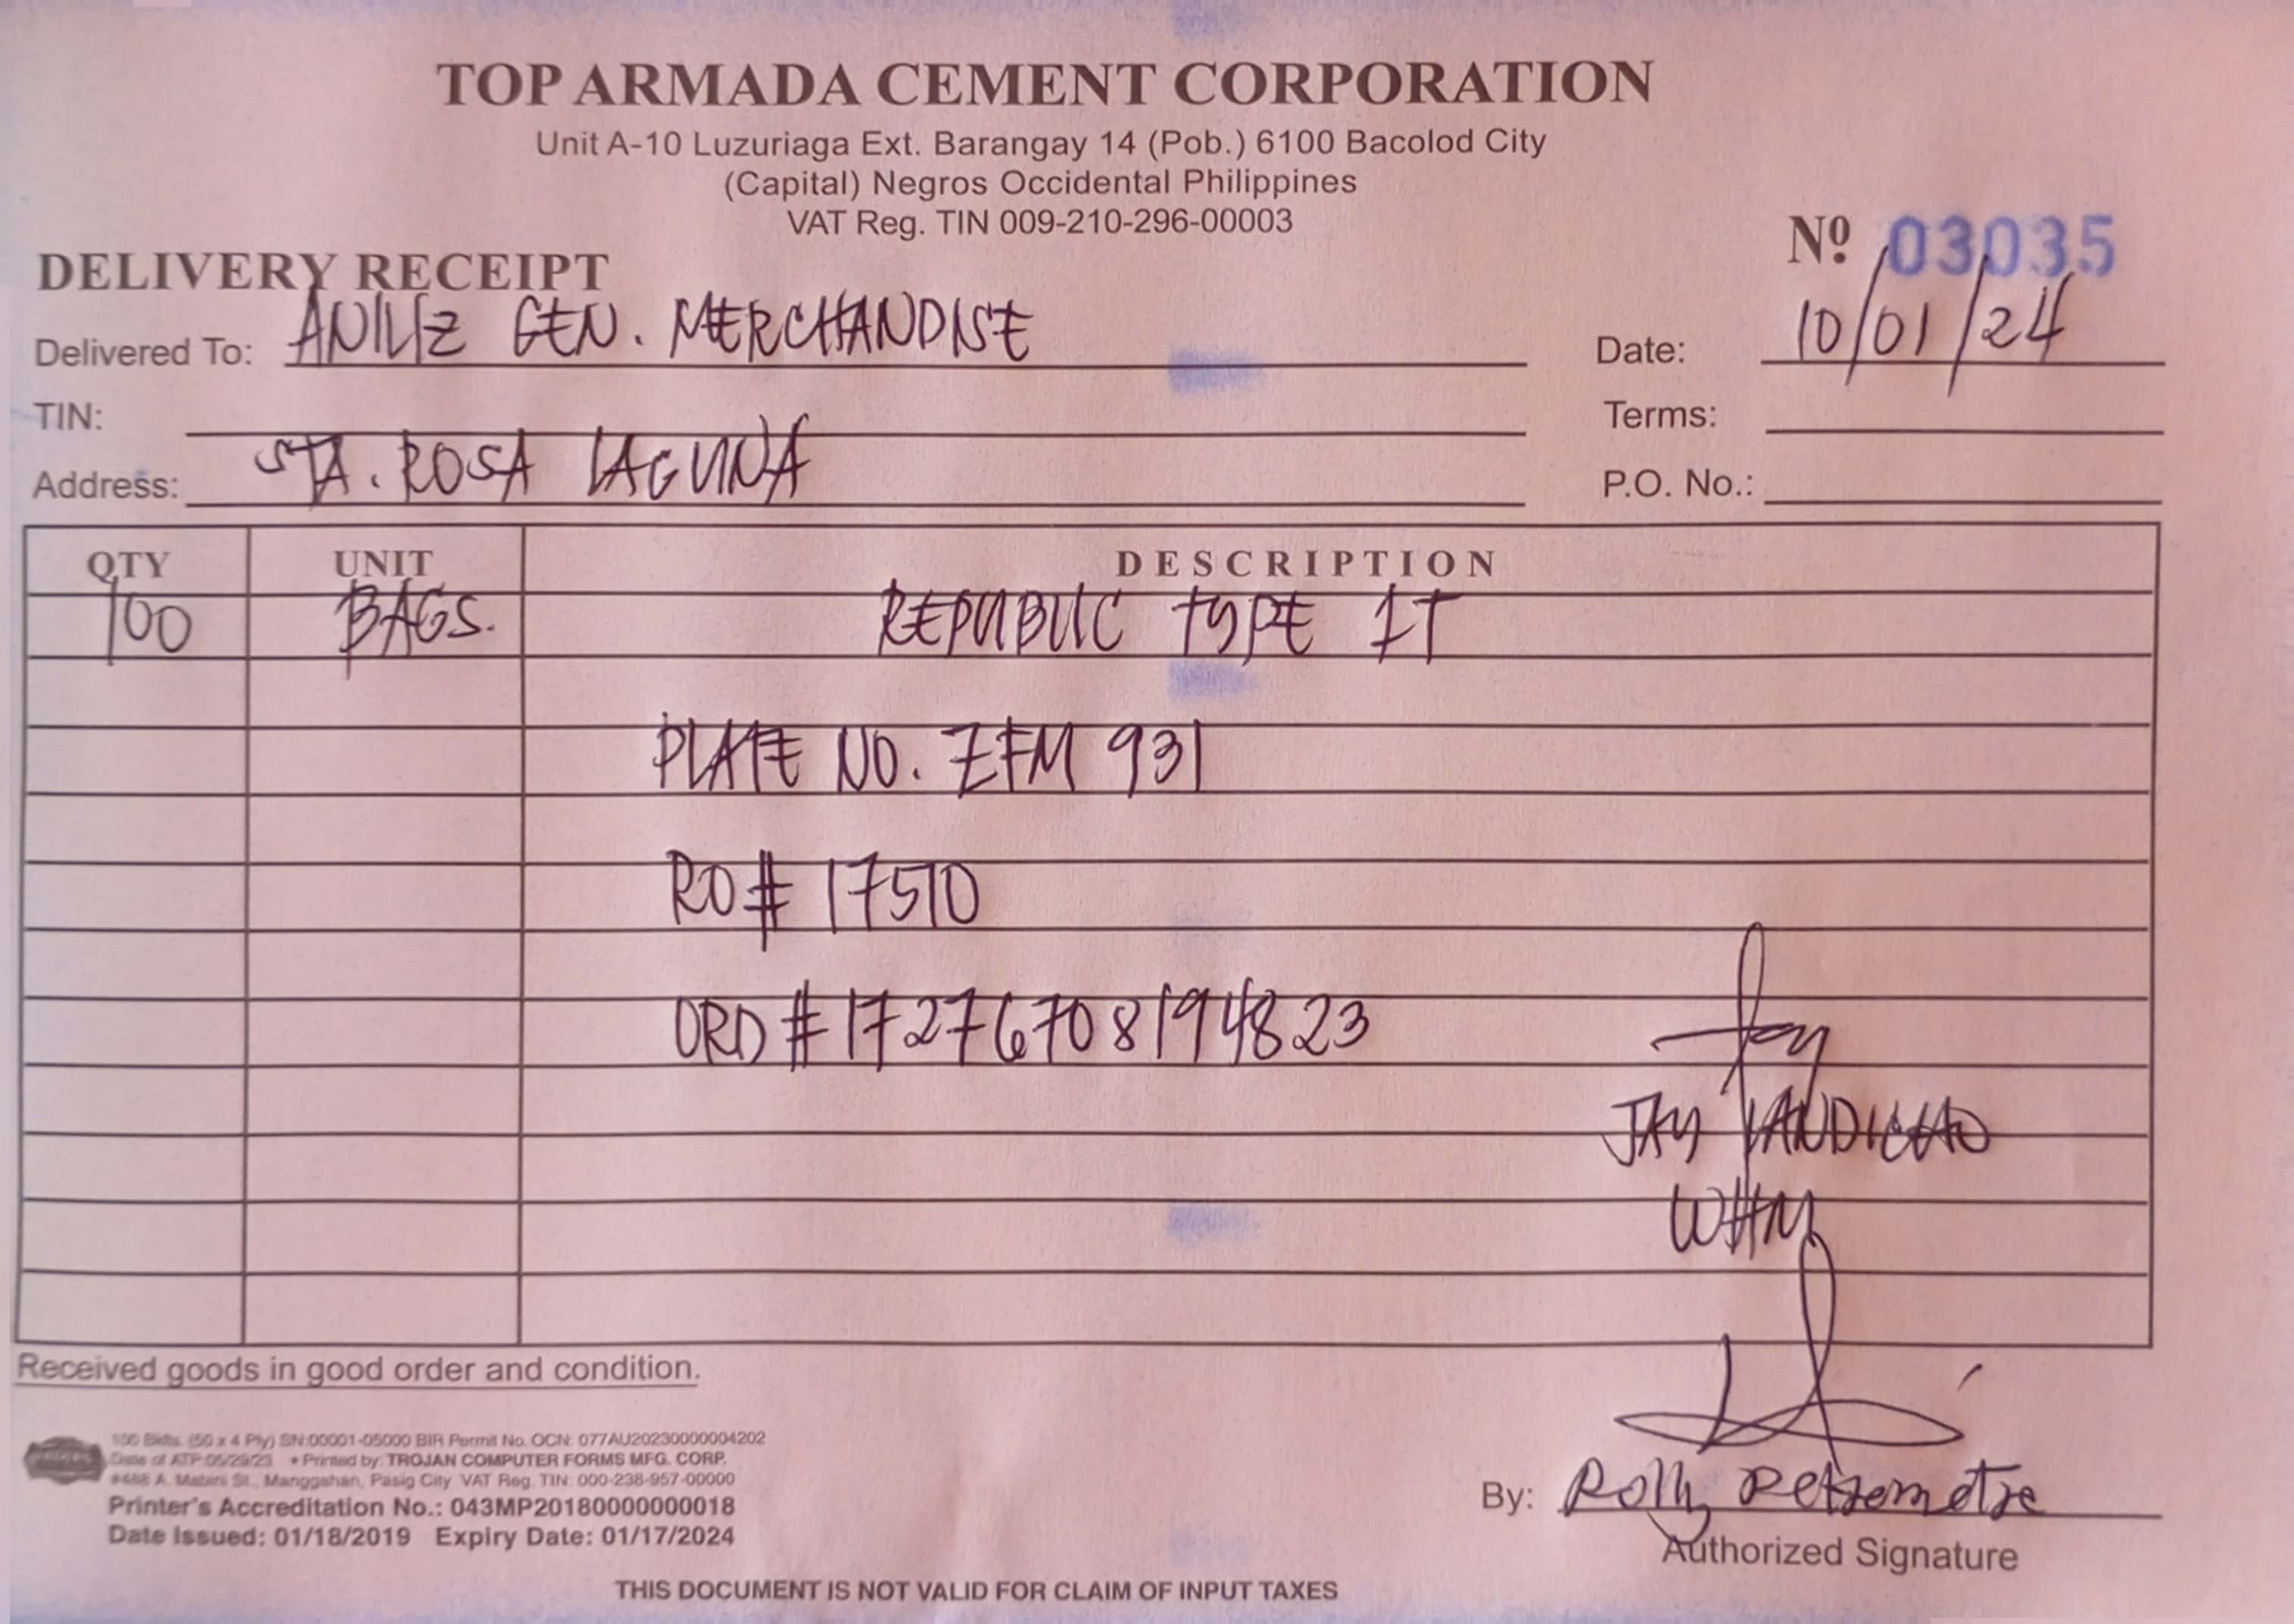 TOP ARMADA CEMENT CORPORATION
Unit A-10 Luzuriaga Ext. Barangay 14 (Pob.) 6100 Bacolod City
(Capital) Negros Occidental Philippines
VAT Reg. TIN 009-210-296-00003
Nº 03035
DELIVERY RECEIPT
Delivered To: ANILIZ GEN. MERCHANDISE
Date: 10/01/24
TIN:
Terms:
Address: STA. ROSA LAGUNA
P.O. No.:
QTY UNIT DESCRIPTION
100 BAGS. REPUBLIC TYPE 1T
PLATE NO. ZFM 931
RO# 17510
ORD # 17276708194823
JAY LANDICHO
WHM
Received goods in good order and condition.
100 Bklts. (50 x 4 Ply) SN:00001-05000 BIR Permit No. OCN: 077AU20230000004202
Date of ATP:05/29/23 • Printed by: TROJAN COMPUTER FORMS MFG. CORP.
#466 A. Mabini St., Manggahan, Pasig City VAT Reg. TIN: 000-238-957-00000
Printer's Accreditation No.: 043MP20180000000018
Date Issued: 01/18/2019 Expiry Date: 01/17/2024
By: Rolly
Authorized Signature
THIS DOCUMENT IS NOT VALID FOR CLAIM OF INPUT TAXES